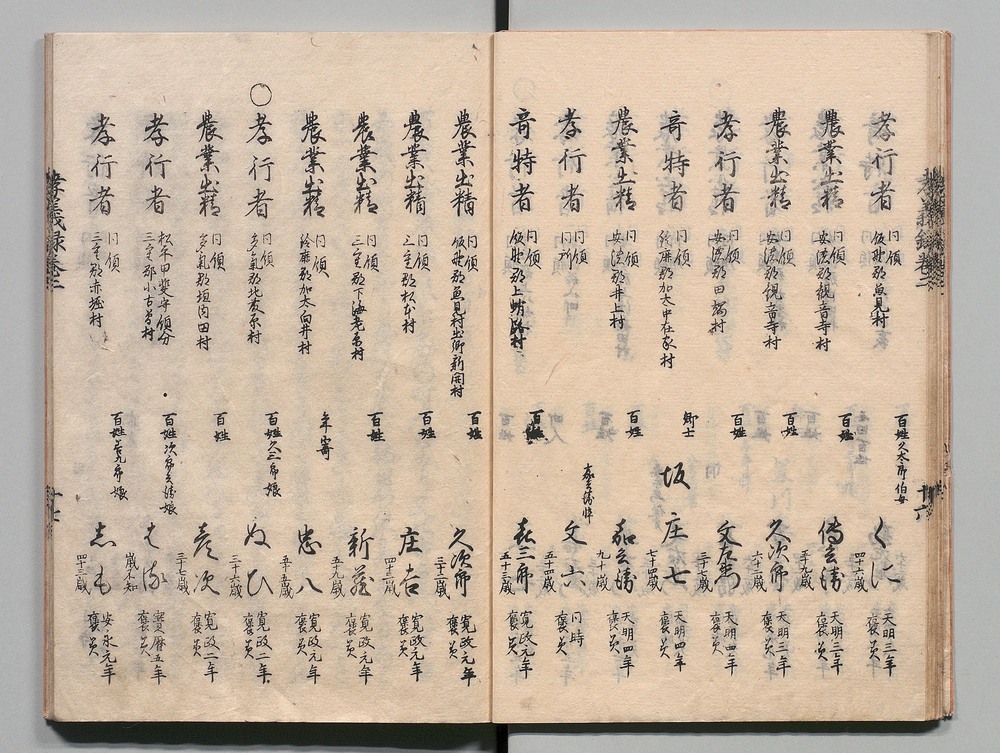 孝行者 同領 飯野郡魚見村 百姓久太郎伯母 くに 四十二歳 天明三年 褒美
農業出精 同領 安濃郡観音寺村 百姓 傳兵衛 五十九歳 天明三年 褒美
農業出精 同領 安濃郡観音寺村 百姓 久次郎 六十三歳 天明三年 褒美
孝行者 同領 安濃郡田端村 百姓 文左衛門 三十七歳 天明四年 褒美
奇特者 同領 鈴鹿郡加太中在家村 郷士 坂 庄七 七十四歳 天明四年 褒美
農業出精 同領 安濃郡井上村 百姓 嘉兵衛 九十歳 天明四年 褒美
孝行者 同領 同所 嘉兵衛悴 文六 五十四歳 同時 褒美
奇特者 同領 飯野郡上蛸路村 百姓 喜三郎 五十三歳 寛政元年 褒美
農業出精 同領 飯野郡魚見村出郷新開村 百姓 久次郎 三十二歳 寛政元年 褒美
農業出精 同領 三重郡松本村 百姓 庄吉 四十二歳 寛政元年 褒美
農業出精 同領 三重郡下海老原村 百姓 新蔵 五十九歳 寛政元年 褒美
農業出精 同領 鈴鹿郡加太向井村 年寄 忠八 五十五歳 寛政元年 褒美
○孝行者 同領 多気郡北友原村 百姓久三郎娘 ぬひ 三十六歳 寛政二年 褒美
農業出精 同領 多気郡垣内田村 百姓 彦次 三十七歳 寛政二年 褒美
孝行者 松平甲斐守領分 三重郡小古曽村 百姓次郎兵衛娘 はる 歳不知 宝暦五年 褒美
孝行者 同領 三重郡赤堀村 百姓善九郎娘 志も 四十三歳 安永元年 褒美
孝義録巻三
十六
孝義録巻三
十七